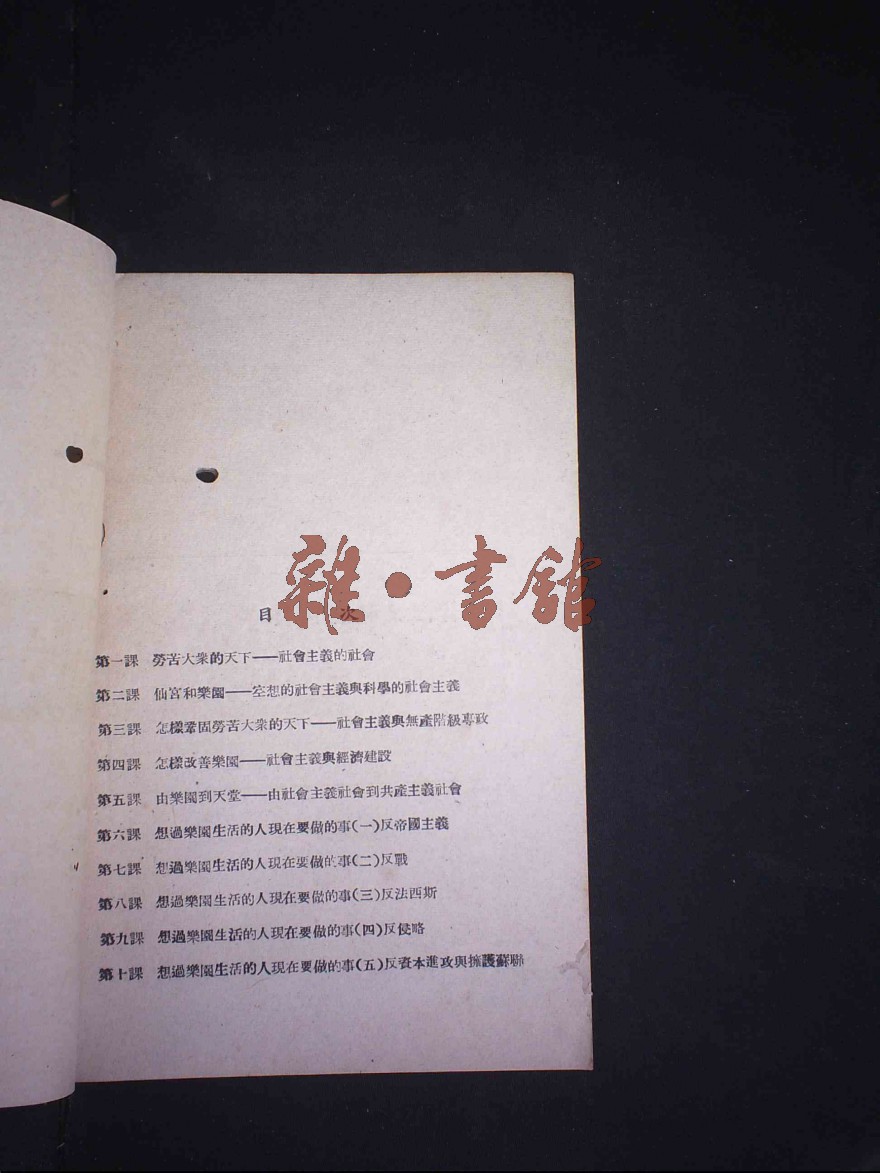 雜·書館
目次
第一課 勞苦大衆的天下——社會主義的社會
第二課 仙宮和樂園——空想的社會主義與科學的社會主義
第三課 怎樣鞏固勞苦大衆的天下——社會主義與無產階級專政
第四課 怎樣改善樂園——社會主義與經濟建設
第五課 由樂園到天堂——由社會主義社會到共產主義社會
第六課 想過樂園生活的人現在要做的事(一)反帝國主義
第七課 想過樂園生活的人現在要做的事(二)反戰
第八課 想過樂園生活的人現在要做的事(三)反法西斯
第九課 想過樂園生活的人現在要做的事(四)反侵略
第十課 想過樂園生活的人現在要做的事(五)反資本進攻與擁護蘇聯